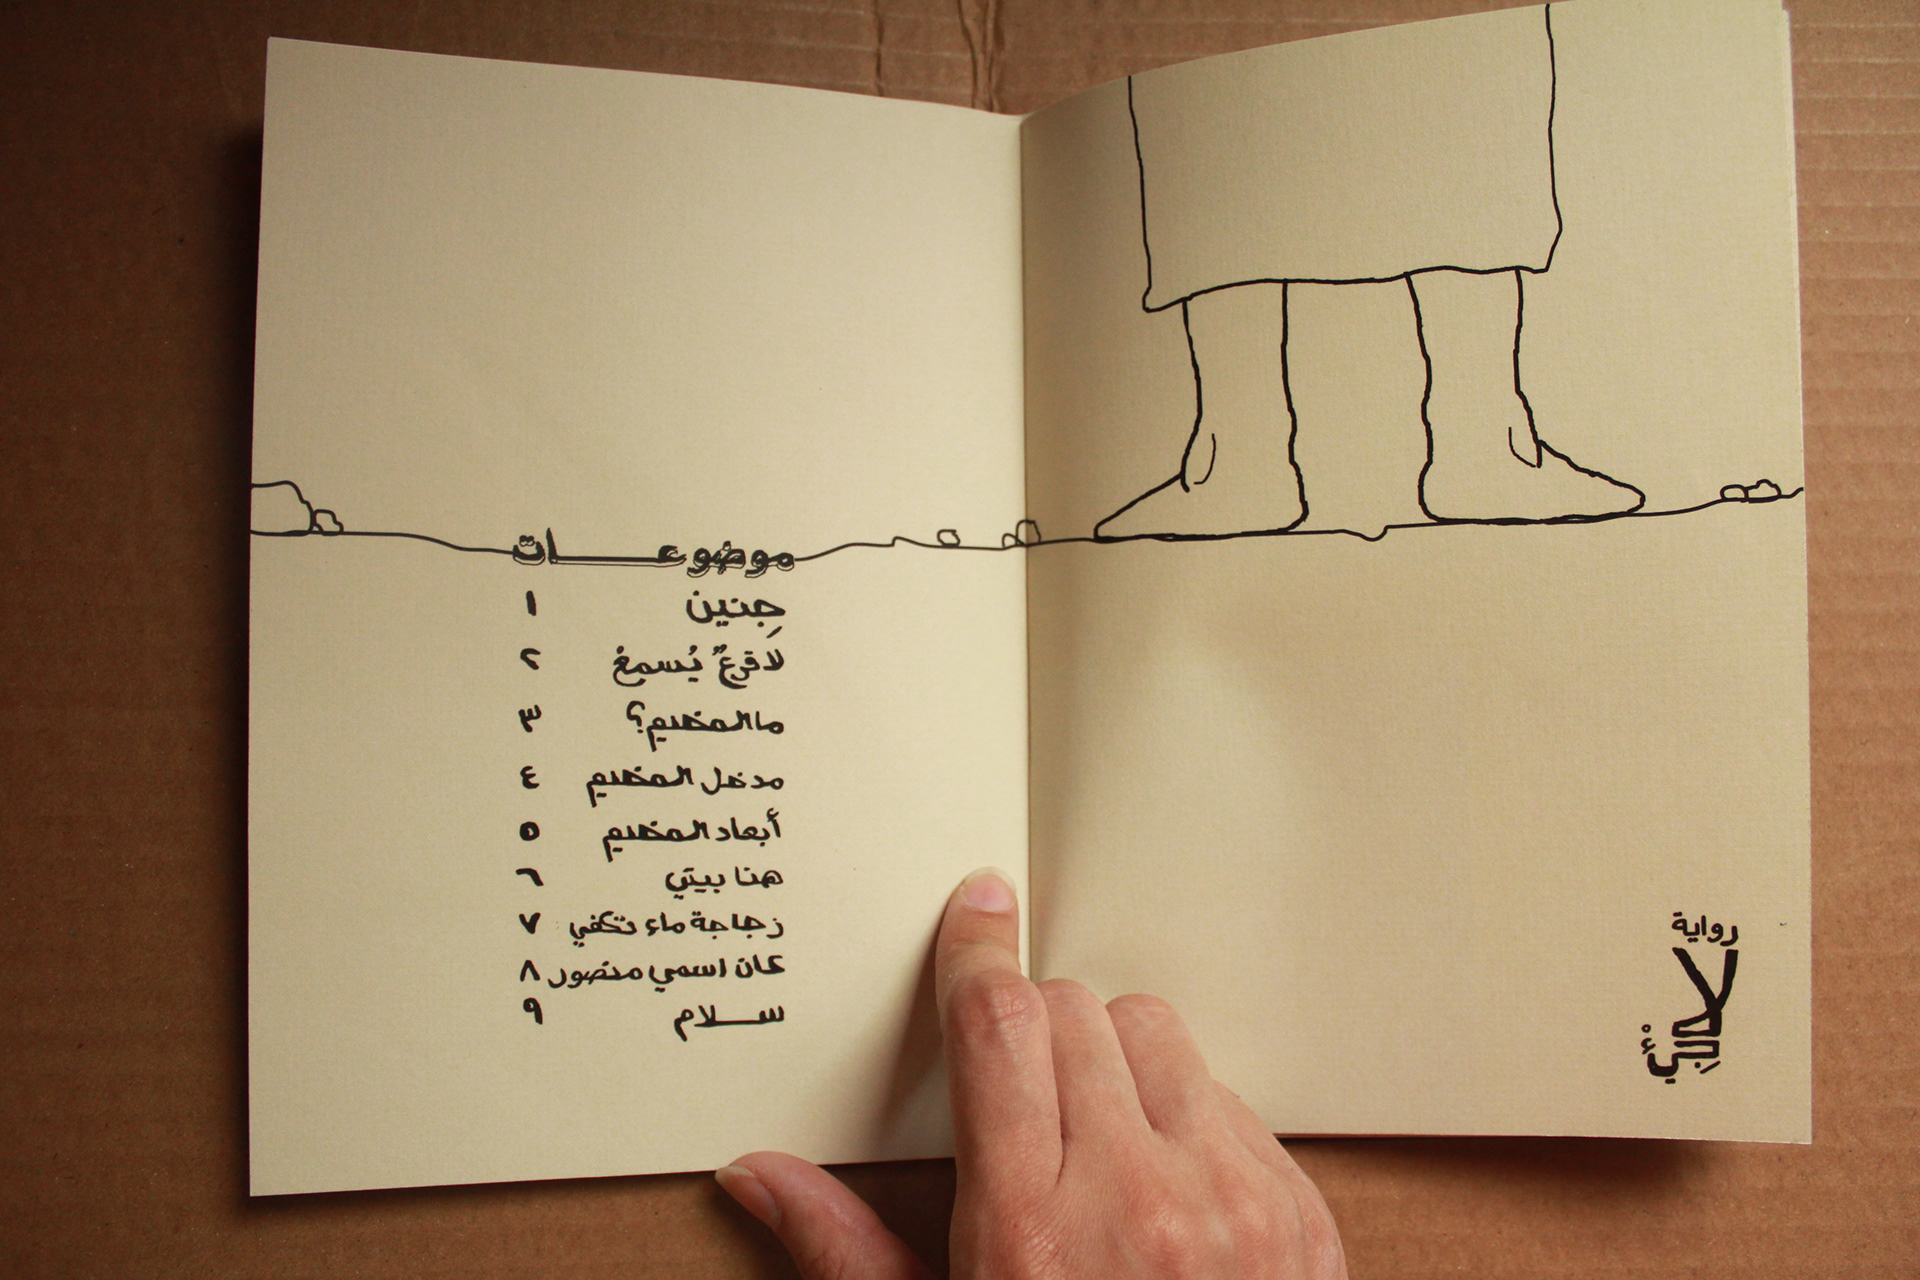 موضوعـــات
جِنين ١
لا قرعٌ يُسمعْ ٢
ما المخيم؟ ٣
مدخل المخيم ٤
أبعاد المخيم ٥
هنا بيتي ٦
زجاجة ماء تكفي ٧
كان اسمي منصور ٨
ســلام ٩
رواية
لاجِئْ